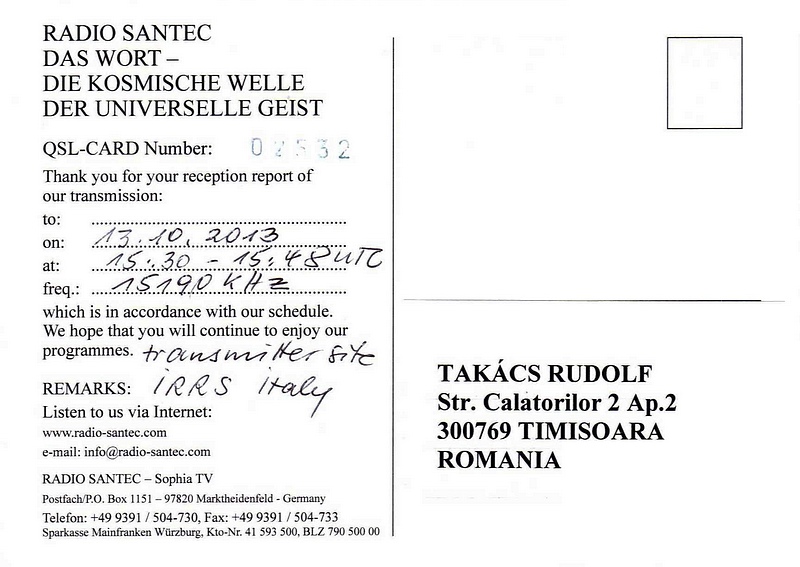 RADIO SANTEC
DAS WORT –
DIE KOSMISCHE WELLE
DER UNIVERSELLE GEIST
QSL-CARD Number: 02532
Thank you for your reception report of
our transmission:
to: ............................................................
on: 13.10.2013
at: 15:30 - 15:48 UTC
freq.: 15190 KHz
which is in accordance with our schedule.
We hope that you will continue to enjoy our
programmes. transmitter site
REMARKS: IRRS Italy
Listen to us via Internet:
www.radio-santec.com
e-mail: info@radio-santec.com
RADIO SANTEC – Sophia TV
Postfach/P.O. Box 1151 – 97820 Marktheidenfeld - Germany
Telefon: +49 9391 / 504-730, Fax: +49 9391 / 504-733
Sparkasse Mainfranken Würzburg, Kto-Nr. 41 593 500, BLZ 790 500 00
TAKÁCS RUDOLF
Str. Calatorilor 2 Ap.2
300769 TIMISOARA
ROMANIA